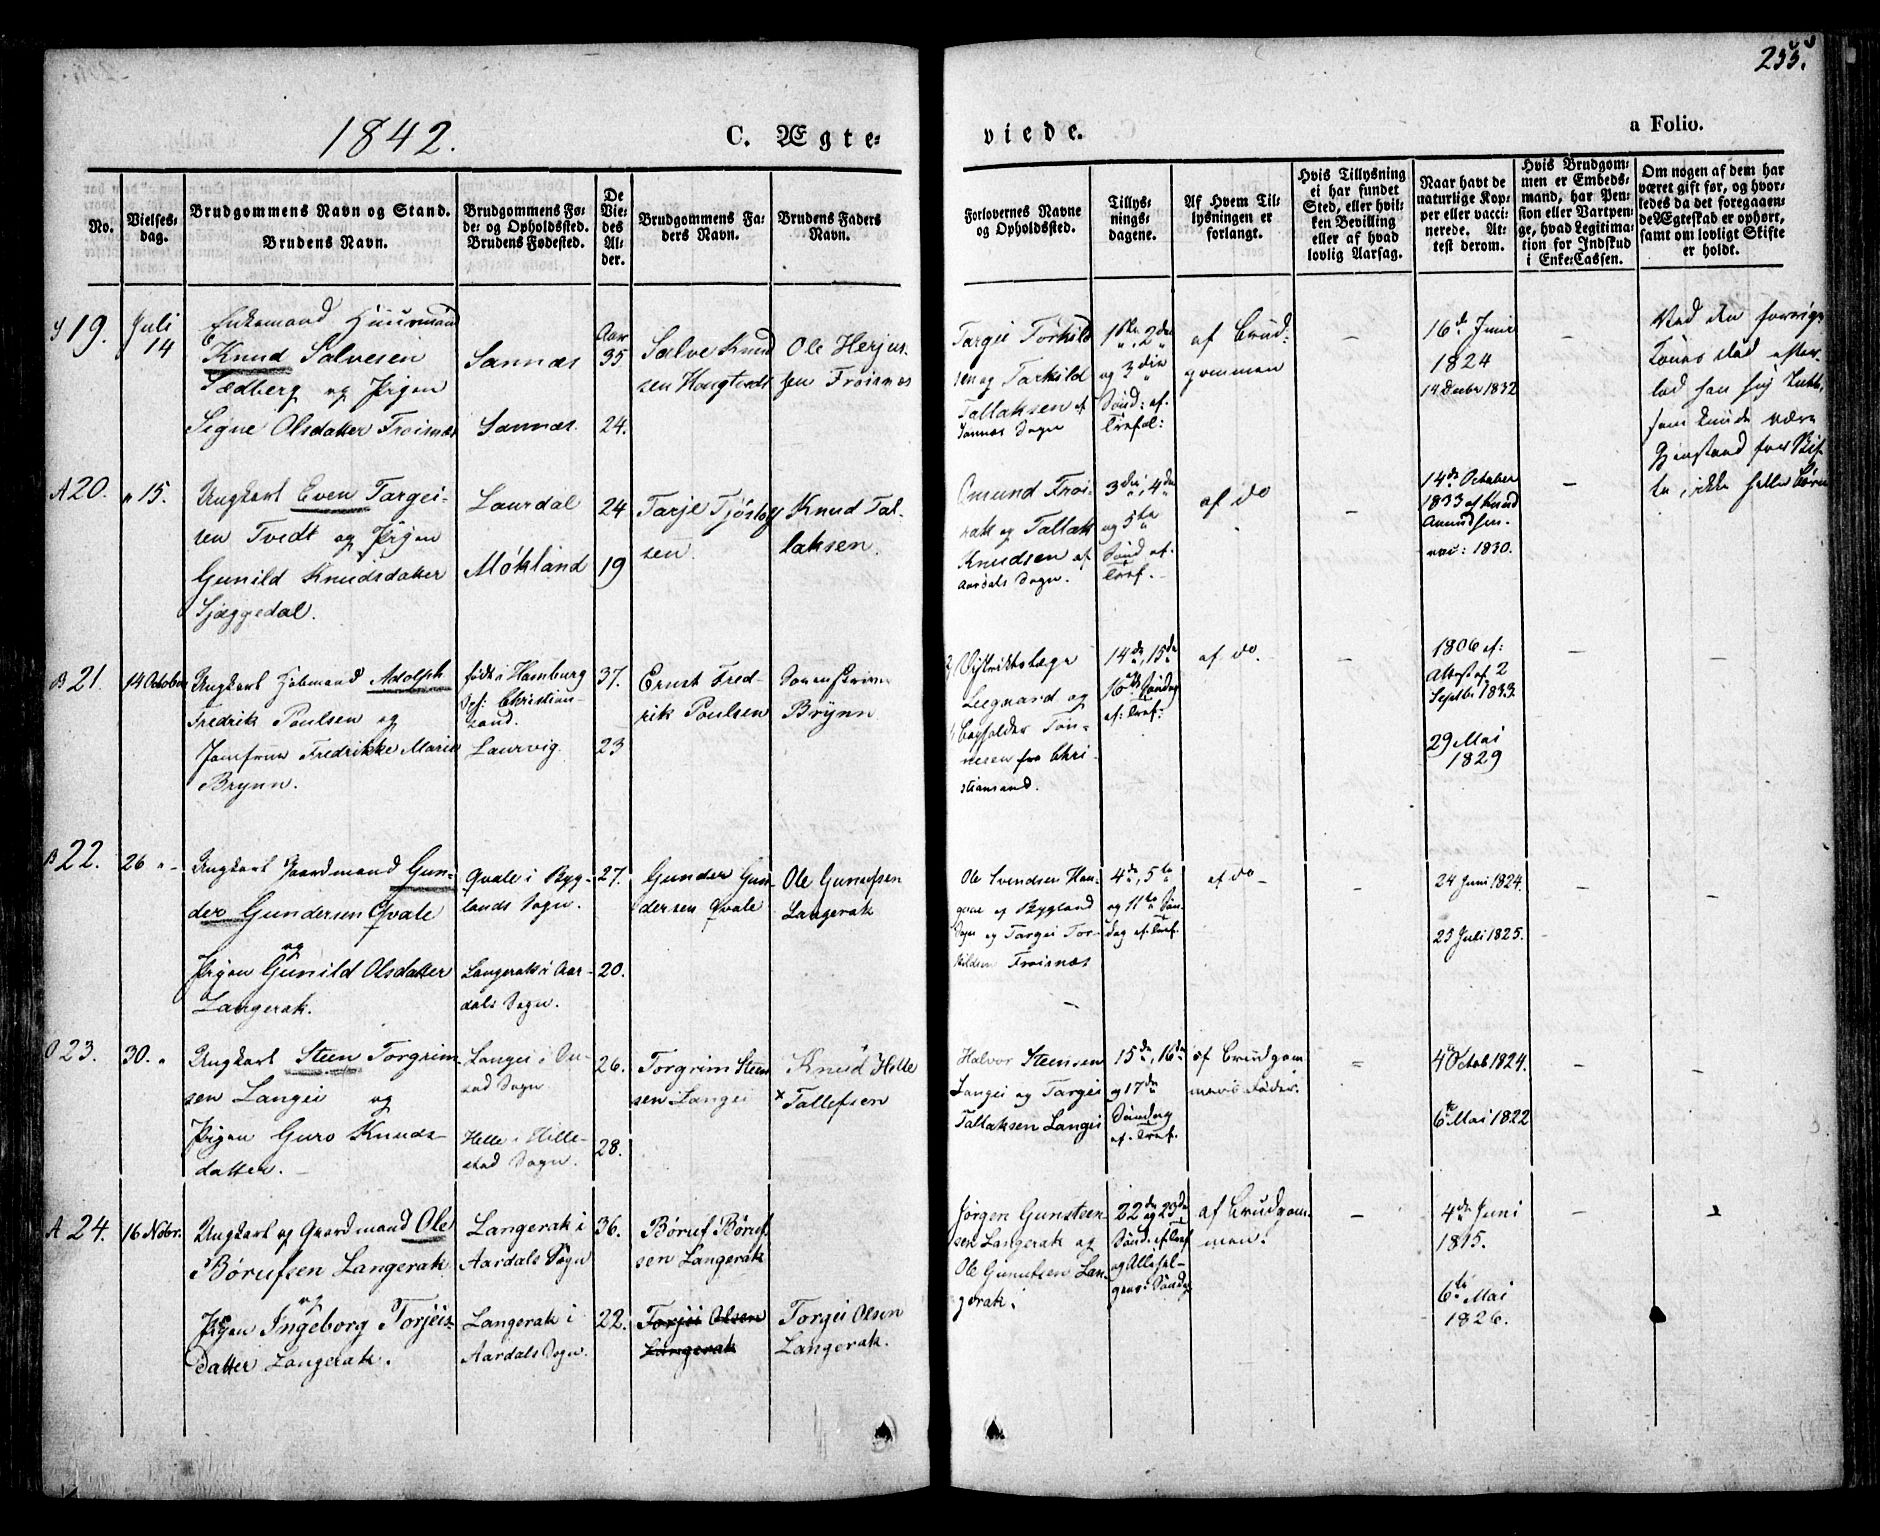 255.
1842.
C. Ægte-
viede.
a Folio.
No.
Vielses-
dag.
Brudgommens Navn og Stand.
Brudens Navn.
Brudgommens Fø-
de- og Opholdssted.
Brudens Fødested.
De
Vie-
des
Al-
der.
Brudgommens Fa-
ders Navn.
Brudens Faders
Navn.
Forlovernes Navne
og Opholdssted.
Tillys-
nings-
dagene.
Af Hvem Til-
lysningen er
forlangt.
Hvis Tillysning
ei har fundet
Sted, eller hvil-
ken Bevilling
eller af hvad
lovlig Aarsag.
Naar havt de
naturlige Kop-
per eller vacci-
nerede. At-
test derom.
Hvis Brudgom-
men er Embeds-
mand, har Pen-
sion eller Vartpen-
ge, hvad Legitima-
tion for Indskud
i Enke-Cassen.
Om nogen af dem har
været gift før, og hvor-
ledes da det foregaaen-
de Ægteskab er ophørt,
samt om lovligt Skifte
er holdt.
19.
Juli
14
Enkemand Huusmand
Knud Salvesen
Sædberg og Pigen
Signe Olsdatter Frøisnæs
Sannæs
Sannæs.
Aar
35
24.
Salve Knud
sen Haugtvedt
Ole Herjus-
sen Frøisnæs
Targei Torkild
sen og Tarkild
Tallaksen af
Sannæs Sogn
1ste, 2den
og 3die
Sønd: ef.
Trefol:
af Brud-
gommen
16de Juni
1824
14 Decbr 1832
Ved den forrige
Kones død efter-
lod han sig Intet,
som kunde være
Gjenstand for Skif-
te, ikke heller Børn
A 20.
" 15.
Ungkarl Even Targei-
sen Tvedt og Pigen
Gunild Knudsdatter
Sjæggedal.
Laurdal
Mokland
24
19
Tarje Tjøstolf
sen.
Knud Tal-
laksen.
Omund Frøi-
rak og Tallak
Knudsen af
Aardals Sogn.
3die, 4de
og 5te
Sønd ef.
Tref.
af do
14de October
1833 af Knud
Amundsen.
vac: 1830.
B 21.
14 October
Ungkarl Kjøbmand Adolph
Fredrik Poulsen og
Jomfrue Fredrikke Marie
Brynn.
født i Hamburg
Op: Christian-
sand.
Laurvig.
37.
23
Ernst Fred-
rik Poulsen
Sorenskriver
Brynn
Districtslæge
Leegaard og
Bogholder Tøn-
nesen fra Chri-
stiansand.
14de, 15de
16de Søndag
ef: Tref:
af do.
1806 ef:
Attest af 2
Septbr 1833.
29 Mai
1829
B 22.
26 " -
Ungkarl Gaardmand Gun-
der Gundersen Qvale
og
Pigen Gunild Olsdatter
Langerak.
Qvale i Byg-
lands Sogn.
Langerak i Aar-
dals Sogn.
27.
20.
Gunder Gun-
dersen Qvale
Ole Gunufsen
Langerak
Ole Svendsen Hau-
gene af Bygland
Sogn og Targei Tor-
kildsen Frøisnæs
4de, 5te
og 11te Søn-
dag ef. Tref.
af do
24 Juni 1824.
25 Juli 1825.
O 23.
30. "
Ungkarl Steen Torgrim-
sen Langei og
Pigen Guro Knuds-
datter.
Langei i Au-
stad Sogn.
Helle i Hille-
stad Sogn.
26.
28.
Torgrim Steen
sen Langei
Knud Helle
x Tallefsen
Halvor Steensen
Langei og Targei
Tallaksen Langei
15de, 16de
og 17de
Søndag
ef. Tref.
af Brudgom-
mens Fader.
4de Octob 1824.
6te Mai 1822
A 24.
16 Nobr.
Ungkarl og Gaardmand Ole
Børufsen Langerak
og
Pigen Ingeborg Torjeis-
datter Langerak.
Langerak i
Aardals Sogn
Langerak i
Aardals Sogn.
36.
22.
Børuf Børuf-
sen Langerak
Torjei Olsen
Langerak
Torgei Olsen
Langerak.
Jørgen Gunsteen-
sen Langerak og
Ole Gunufsen Lan-
gerak.
22de og 23de
Sønd. ef. Tref
og Allehel-
gens Søndag
af Brudgom-
men.
4de Juni
1815.
6te Mai
1826.